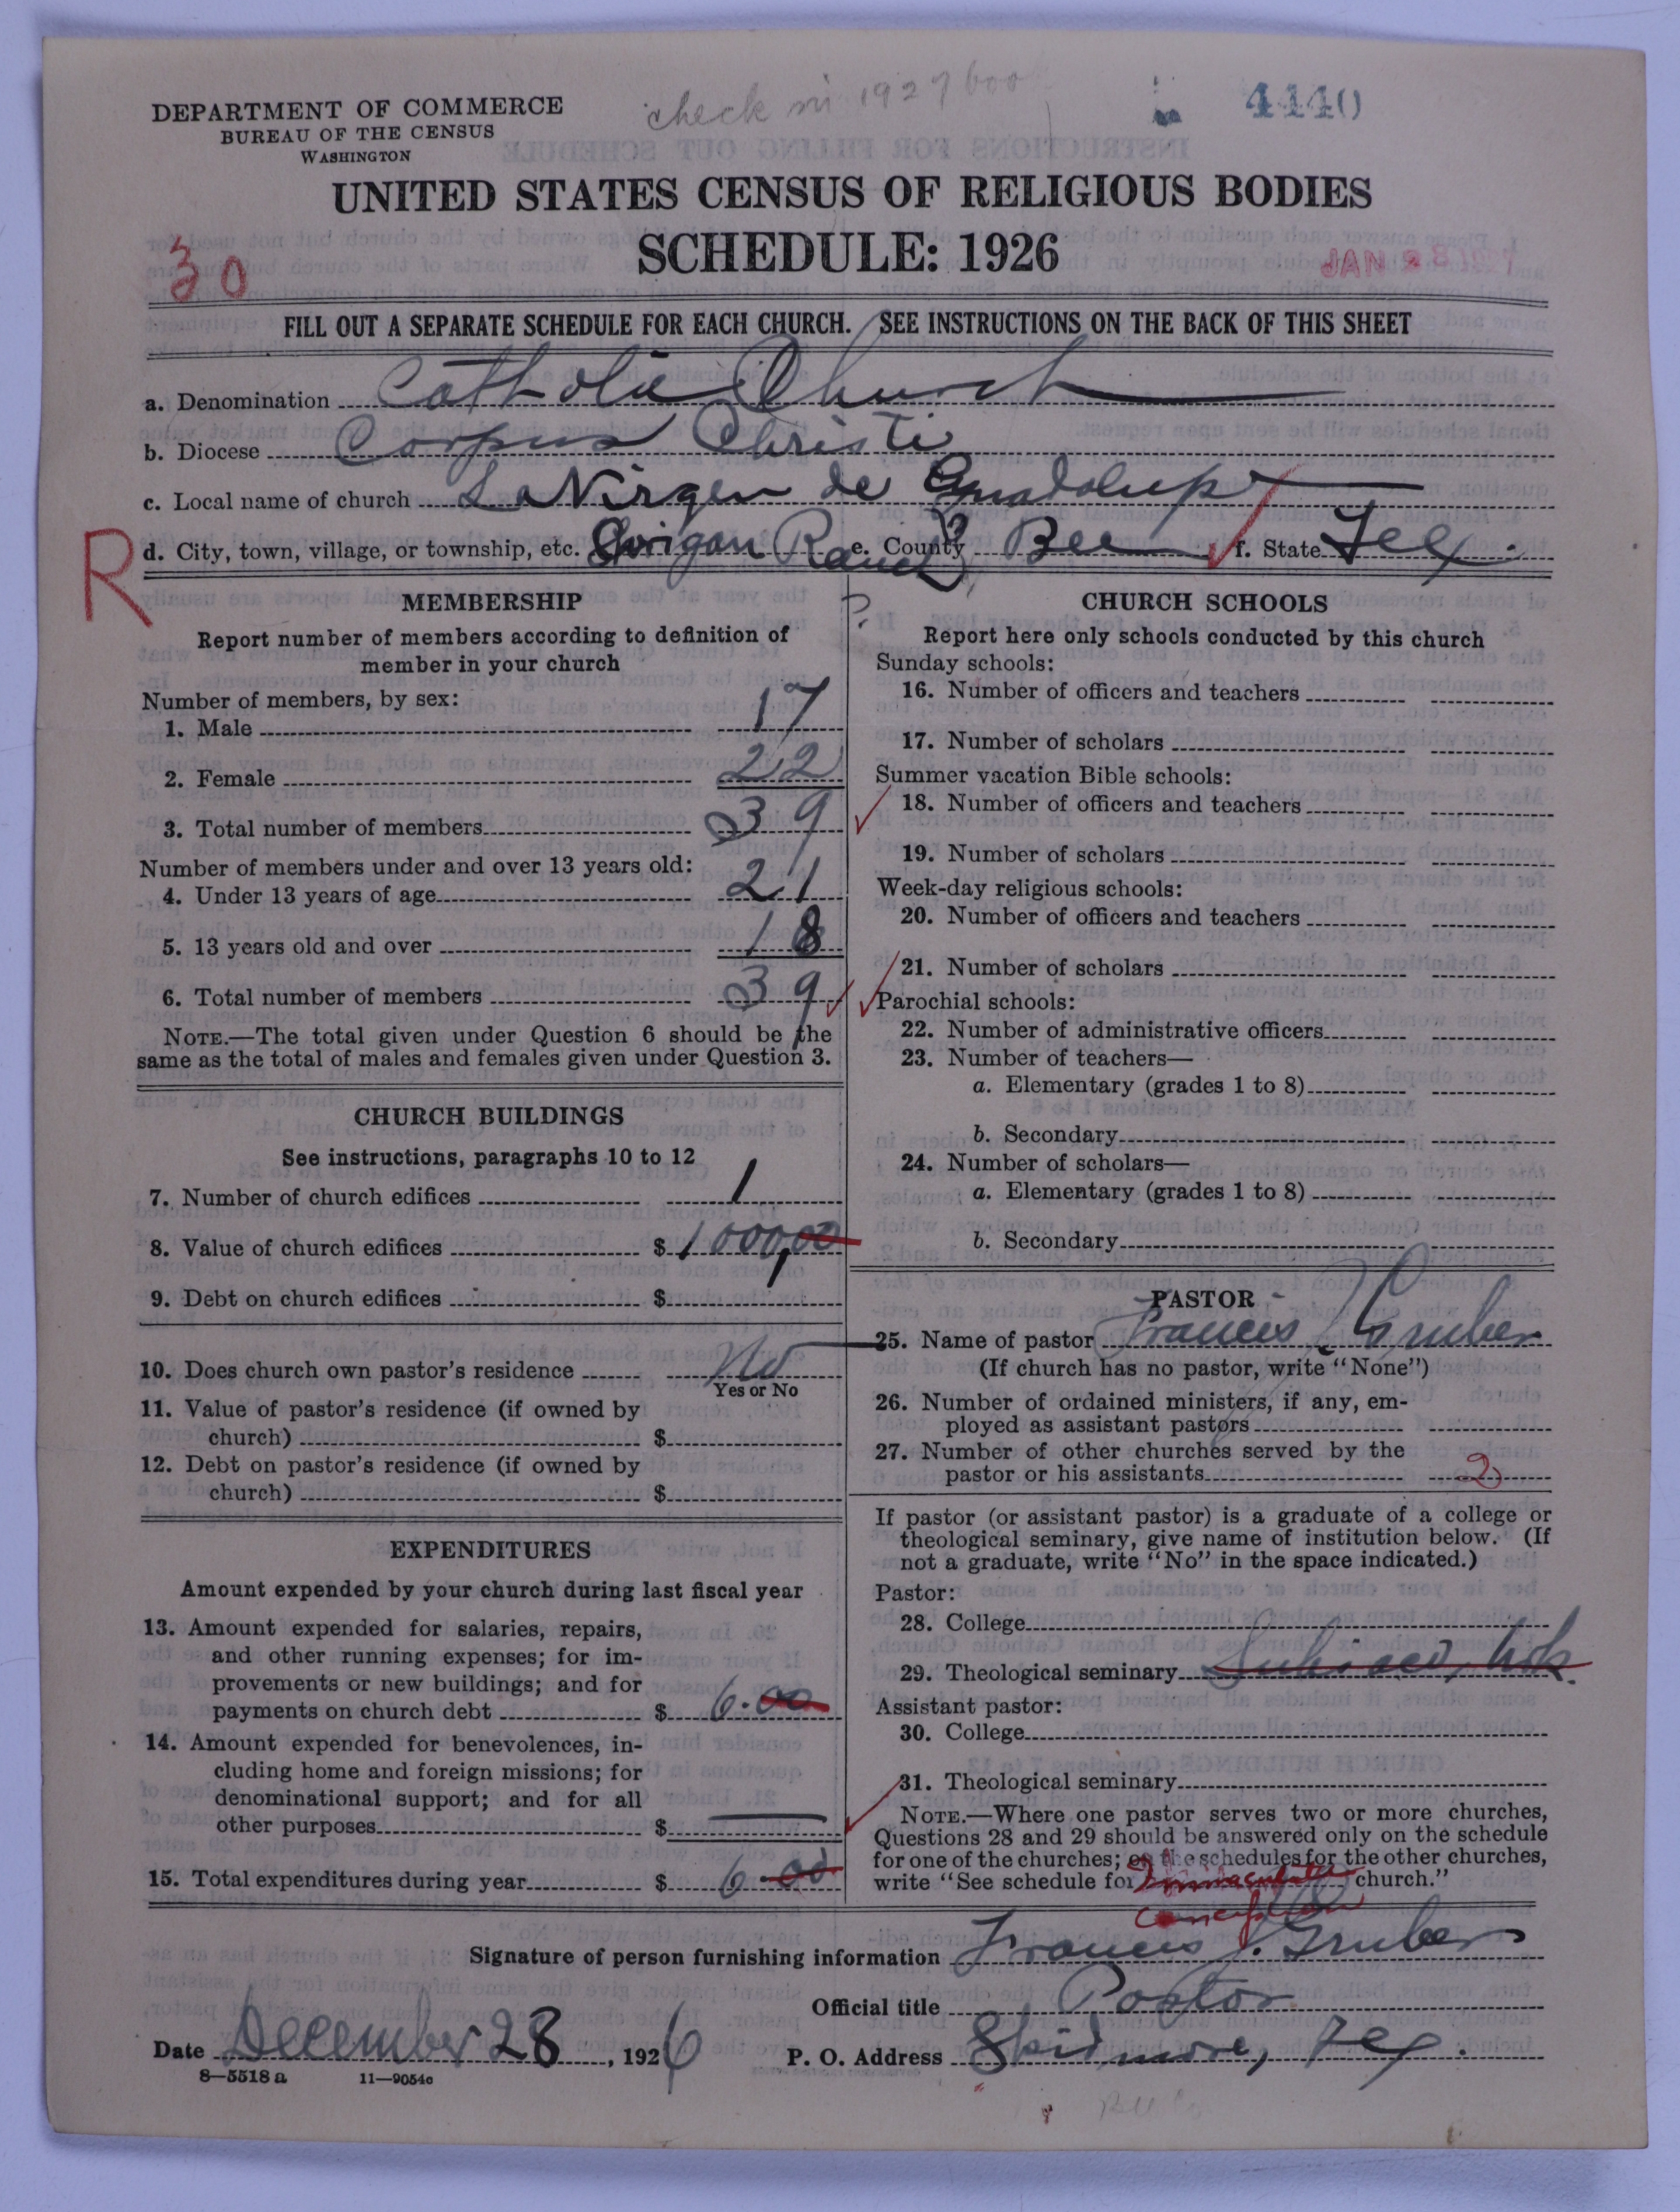 check in 1927
4440
DEPARTMENT OF COMMERCE
BUREAU OF THE CENSUS
WASHINGTON
UNITED STATES CENSUS OF RELIGIOUS BODIES
SCHEDULE: 1926
30
JAN 28 1927
FILL OUT A SEPARATE SCHEDULE FOR EACH CHURCH. SEE INSTRUCTIONS ON THE BACK OF THIS SHEET
a. Denomination Catholic Church
b. Diocese Corpus Christi
c. Local name of church La Virgen de Guadalupe
R
d. City, town, village, or township, etc. Ranch e. County Bee f. State Tex.
MEMBERSHIP
Report number of members according to definition of
member in your church
Number of members, by sex:
1. Male 17
2. Female 22
3. Total number of members 39
Number of members under and over 13 years old:
4. Under 13 years of age 21
5. 13 years old and over 18
6. Total number of members 39
NOTE.—The total given under Question 6 should be the
same as the total of males and females given under Question 3.
CHURCH BUILDINGS
See instructions, paragraphs 10 to 12
7. Number of church edifices 1
8. Value of church edifices $ 1000,00
9. Debt on church edifices $
10. Does church own pastor's residence No
Yes or No
11. Value of pastor's residence (if owned by
church) $
12. Debt on pastor's residence (if owned by
church) $
EXPENDITURES
Amount expended by your church during last fiscal year
13. Amount expended for salaries, repairs,
and other running expenses; for im-
provements or new buildings; and for
payments on church debt $ 6.00
14. Amount expended for benevolences, in-
cluding home and foreign missions; for
denominational support; and for all
other purposes $ —
15. Total expenditures during year $ 6.00
?
CHURCH SCHOOLS
Report here only schools conducted by this church
Sunday schools:
16. Number of officers and teachers
17. Number of scholars
Summer vacation Bible schools:
18. Number of officers and teachers
19. Number of scholars
Week-day religious schools:
20. Number of officers and teachers
21. Number of scholars
Parochial schools:
22. Number of administrative officers
23. Number of teachers—
a. Elementary (grades 1 to 8)
b. Secondary
24. Number of scholars—
a. Elementary (grades 1 to 8)
b. Secondary
PASTOR
25. Name of pastor Francis J. Gruber
(If church has no pastor, write "None")
26. Number of ordained ministers, if any, em-
ployed as assistant pastors
27. Number of other churches served by the
pastor or his assistants 2
If pastor (or assistant pastor) is a graduate of a college or
theological seminary, give name of institution below. (If
not a graduate, write "No" in the space indicated.)
Pastor:
28. College
29. Theological seminary Subiaco, Ark.
Assistant pastor:
30. College
31. Theological seminary
NOTE.—Where one pastor serves two or more churches,
Questions 28 and 29 should be answered only on the schedule
for one of the churches; on the schedules for the other churches,
write "See schedule for Immaculate church."
Conception
Signature of person furnishing information Francis J. Gruber
Official title Pastor
Date December 28, 1926 P. O. Address Skidmore, Tex.
8—5518 a 11—9054c